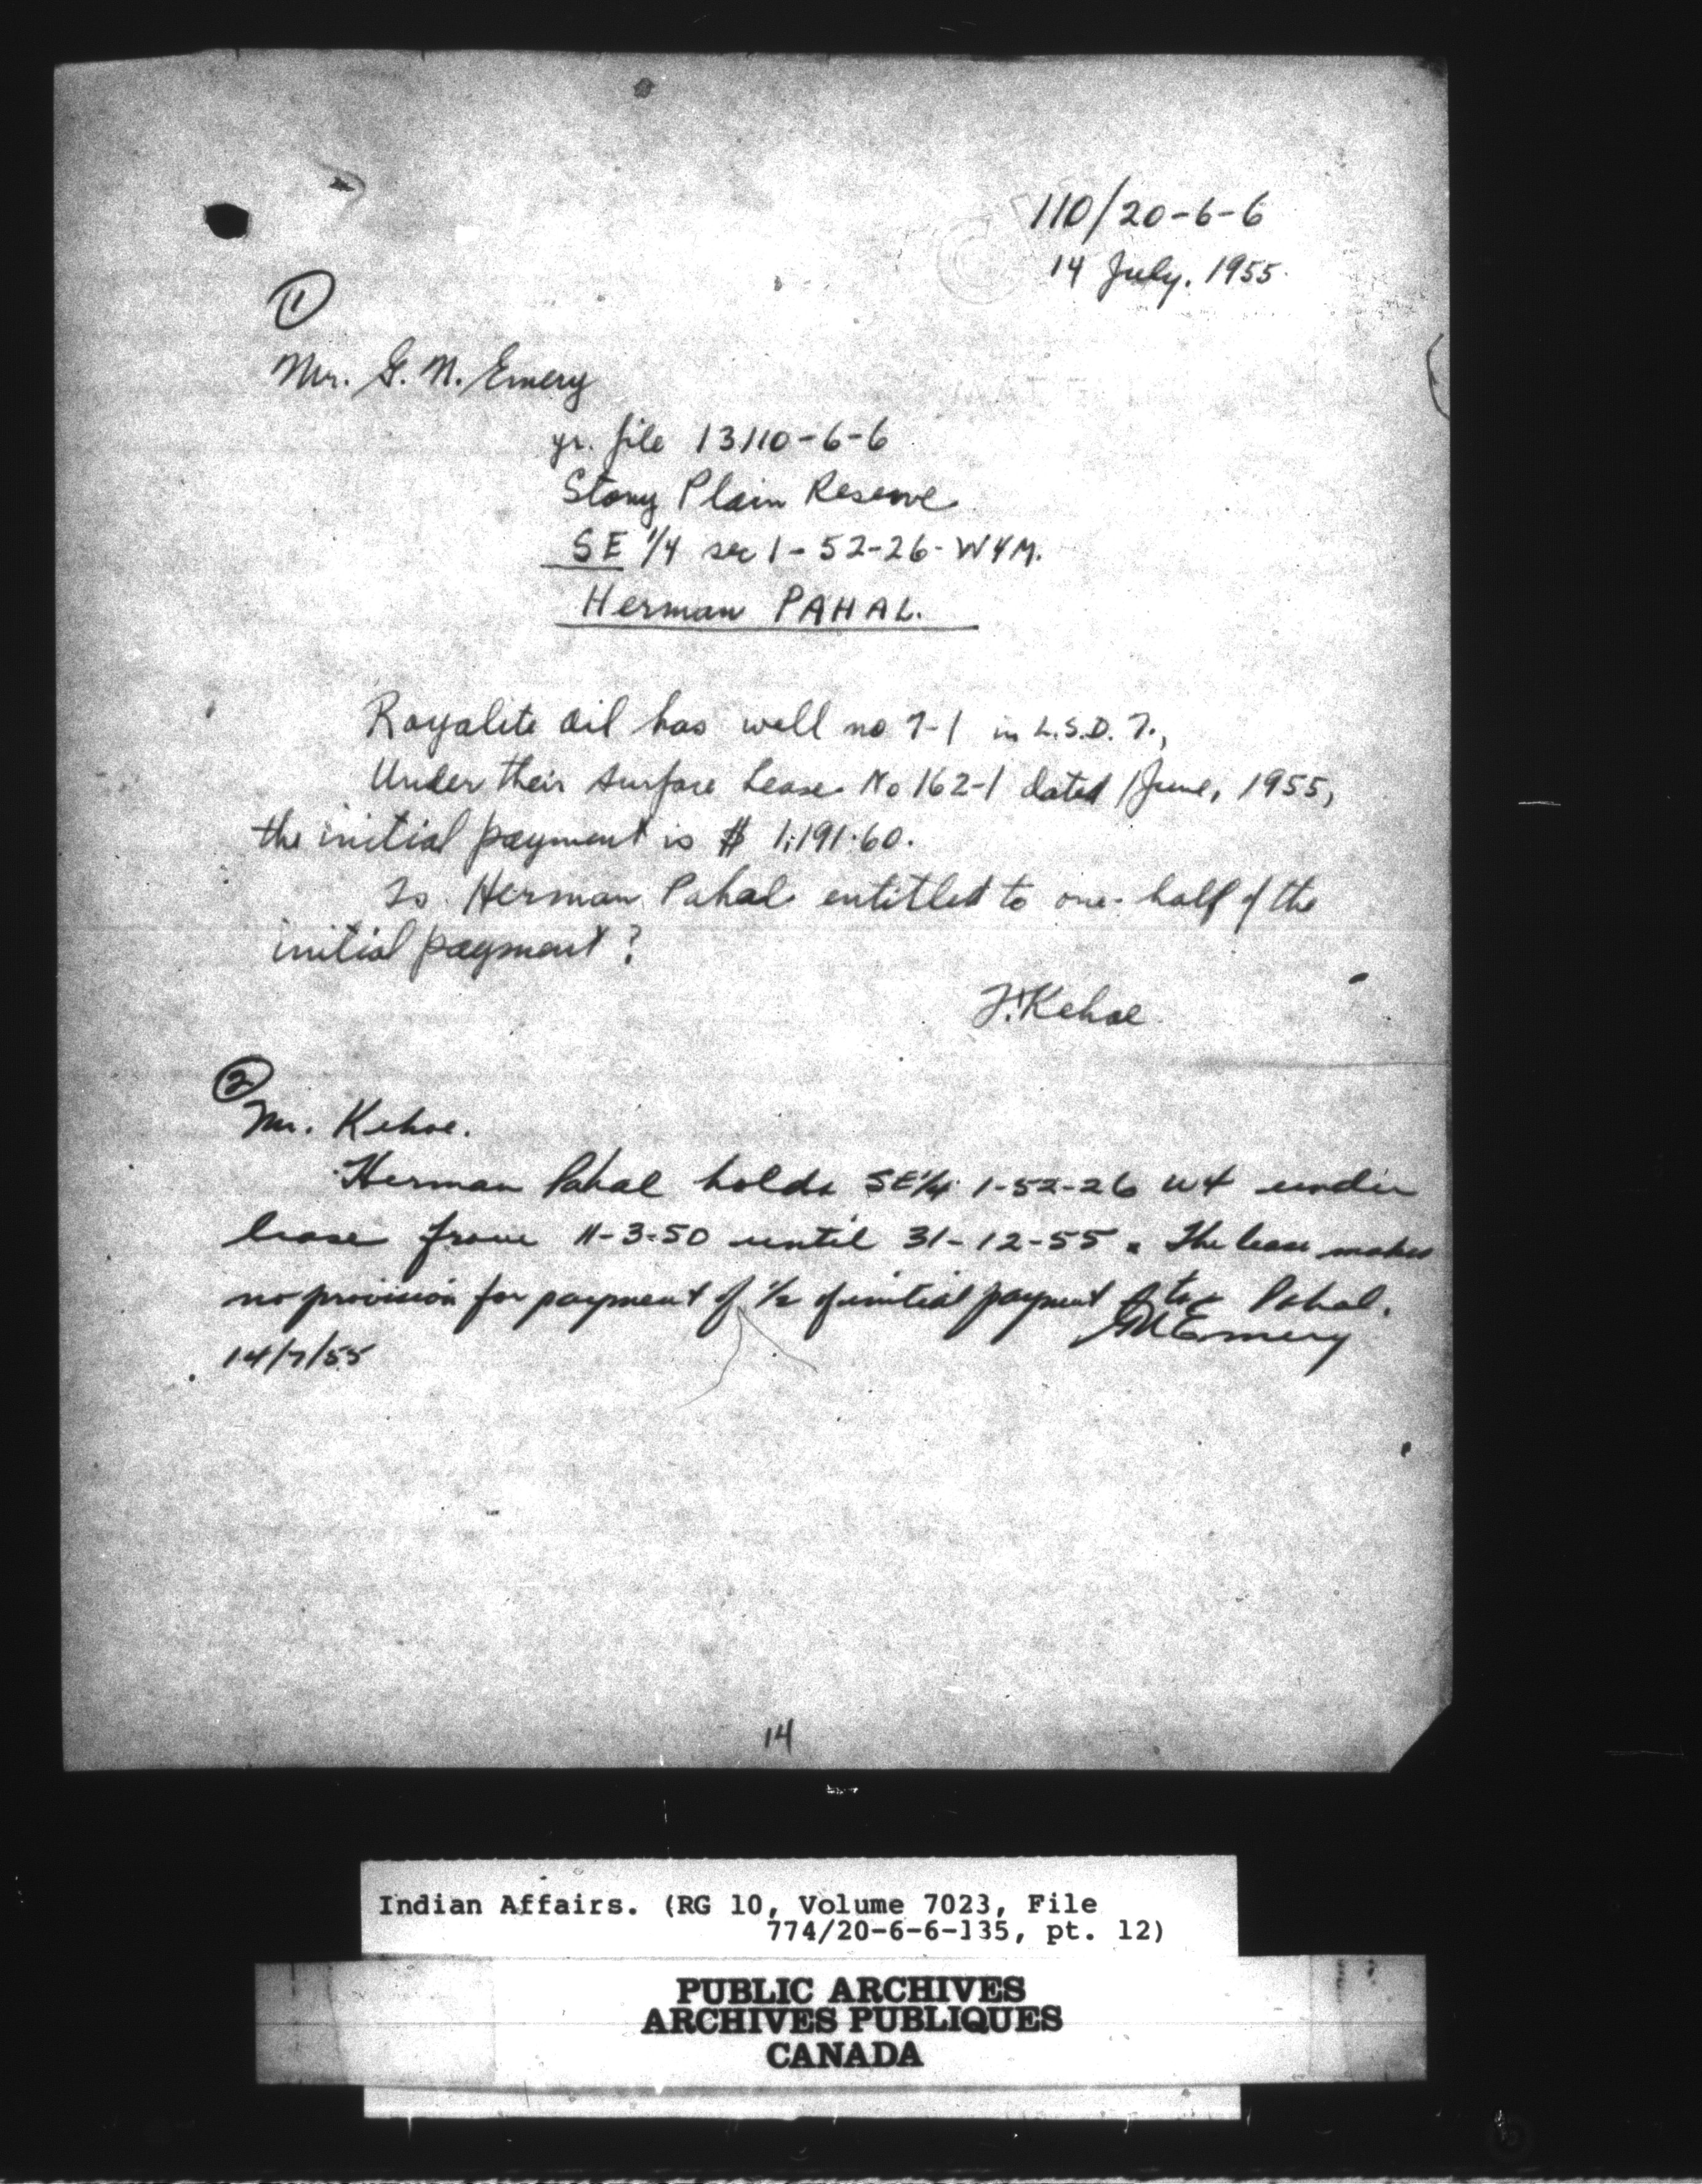 110/20-6-6
14 July. 1955.
1
Mr. G. N. Emery
yr. file 13110-6-6
Stony Plain Reserve
SE 1/4 sec 1-52-26-W4M.
Herman PAHAL.
Royalite Oil has well no 7-1 in L.S.D. 7.,
Under their surface Lease No 162-1 dated 1 June, 1955,
the initial payment is $ 1,191.60.
Is Herman Pahal entitled to one-half of the
initial payment?
F. Kehoe
2
Mr. Kehoe.
Herman Pahal holds SE1/4 1-52-26 W4 under
lease from 11-3-50 until 31-12-55. The lease makes
no provision for payment of 1/2 of initial payment to Pahal.
GNEmery
14/7/55
14
Indian Affairs. (RG 10, Volume 7023, File
774/20-6-6-135, pt. 12)
PUBLIC ARCHIVES
ARCHIVES PUBLIQUES
CANADA